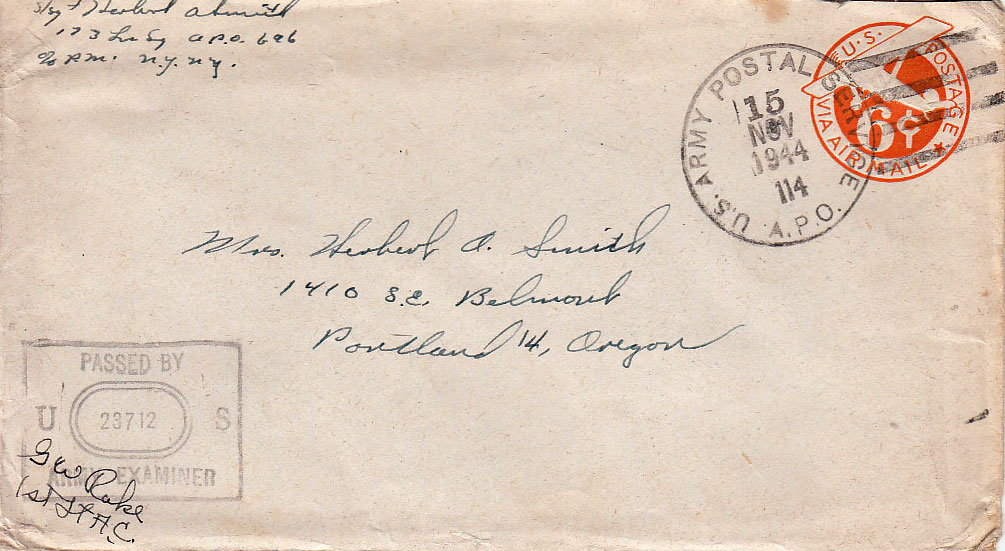 S/Sgt Herbert A Smith
173 Ln Sq A.P.O. 696
% P.M. N.Y. N.Y.
U.S. POSTAGE
VIA AIR MAIL
6¢
U.S. ARMY POSTAL SERVICE
A.P.O.
15
NOV
1944
114
Mrs. Herbert A. Smith
1410 S.E. Belmont
Portland 14, Oregon
PASSED BY
U 23712 S
ARMY EXAMINER
1st Lt A.C.